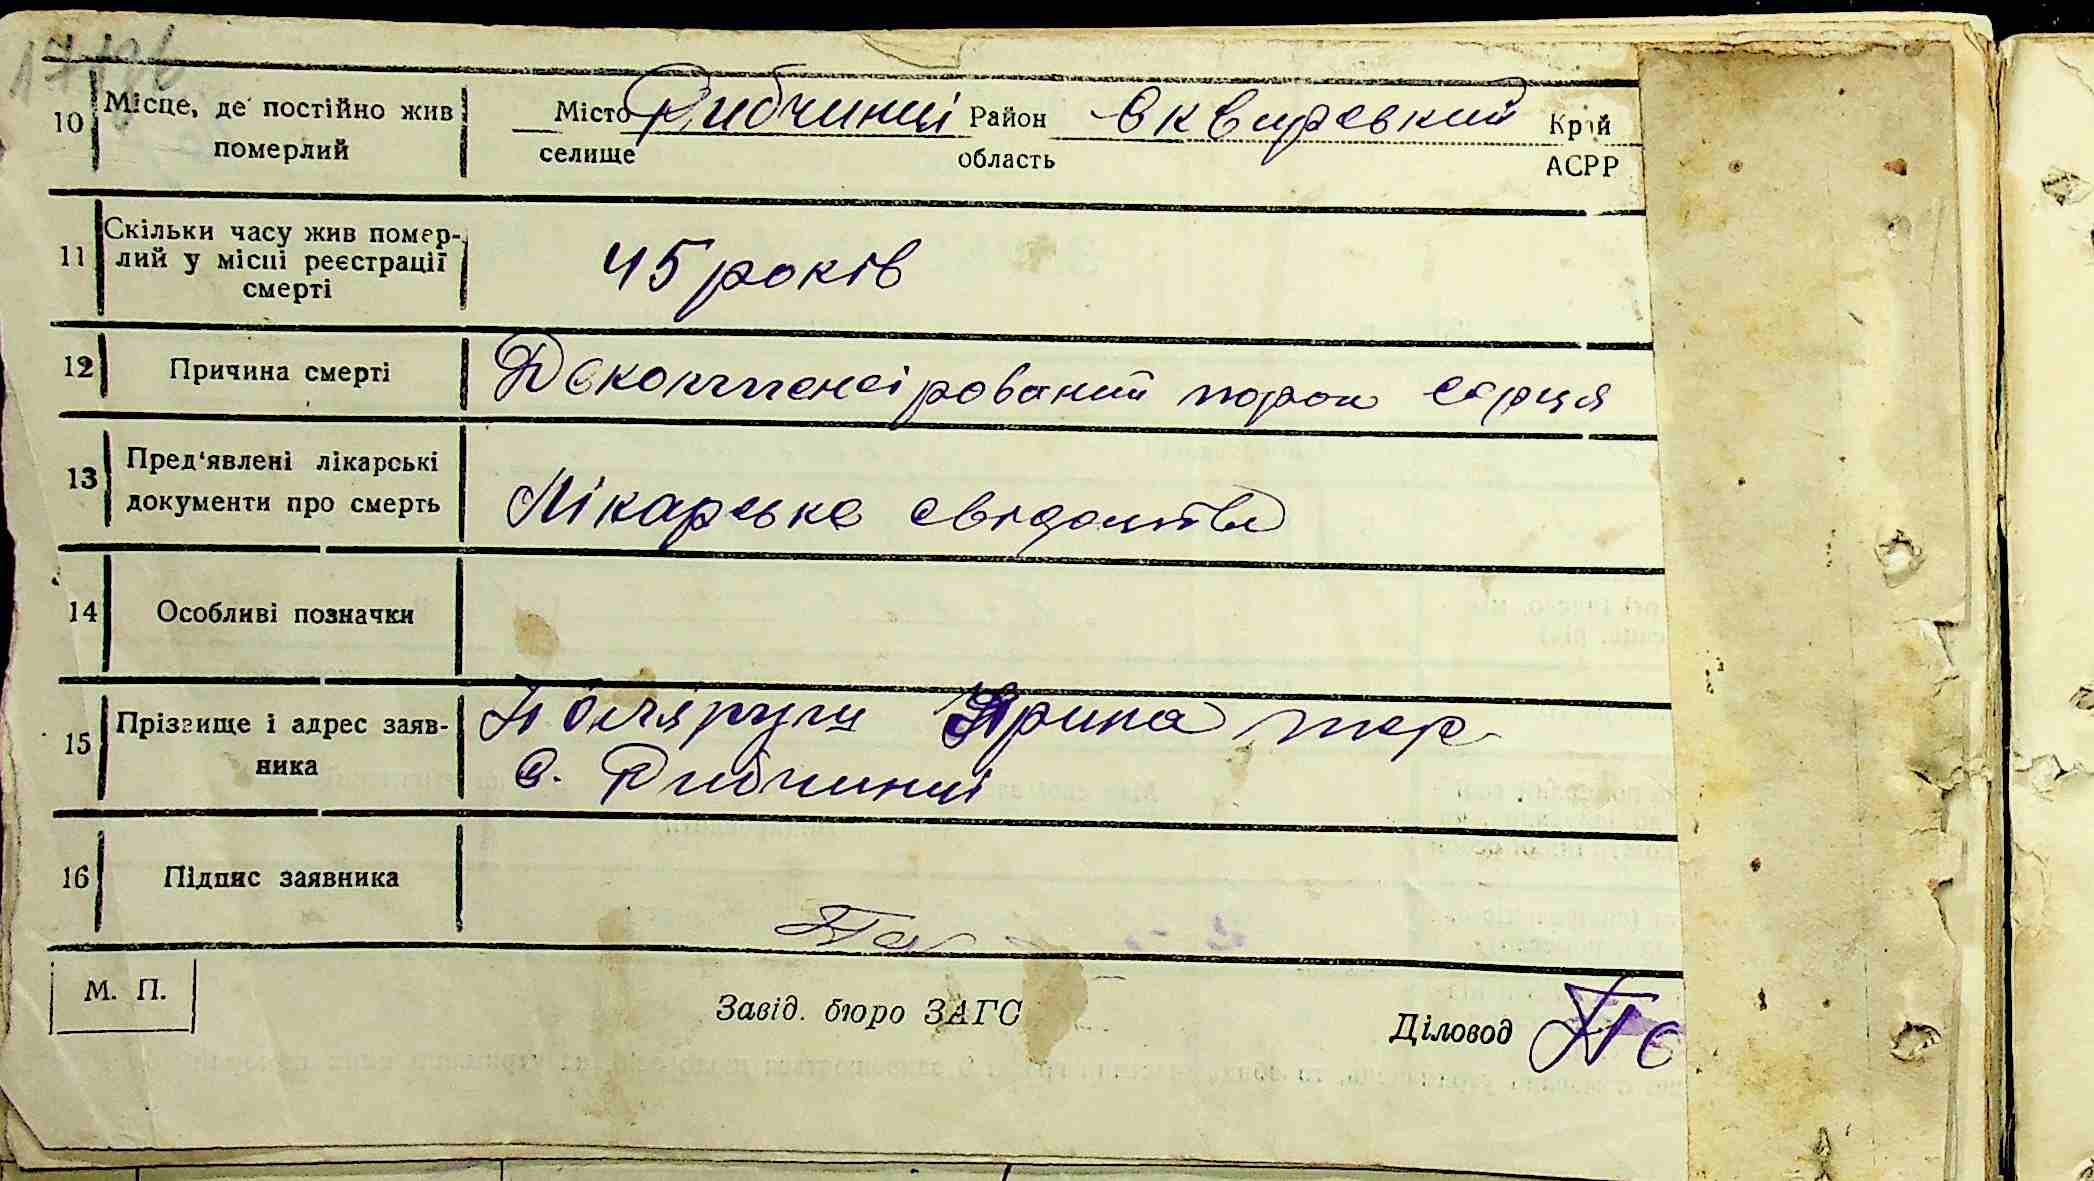 10 Місце, де постійно жив померлий Місто селище Рибчинці Район область Сквирський Край АСРР
11 Скільки часу жив помер-
лий у місці реєстрації
смерті
45 років
12 Причина смерті Декомпенсірований порок серця
13 Пред'явлені лікарські
документи про смерть
Лікарське свідоцтво
14 Особливі позначки
15 Прізвище і адрес заяв-
ника
Ярина
с. Рибчинці
16 Підпис заявника
М. П.
Завід. бюро ЗАГС
Діловод